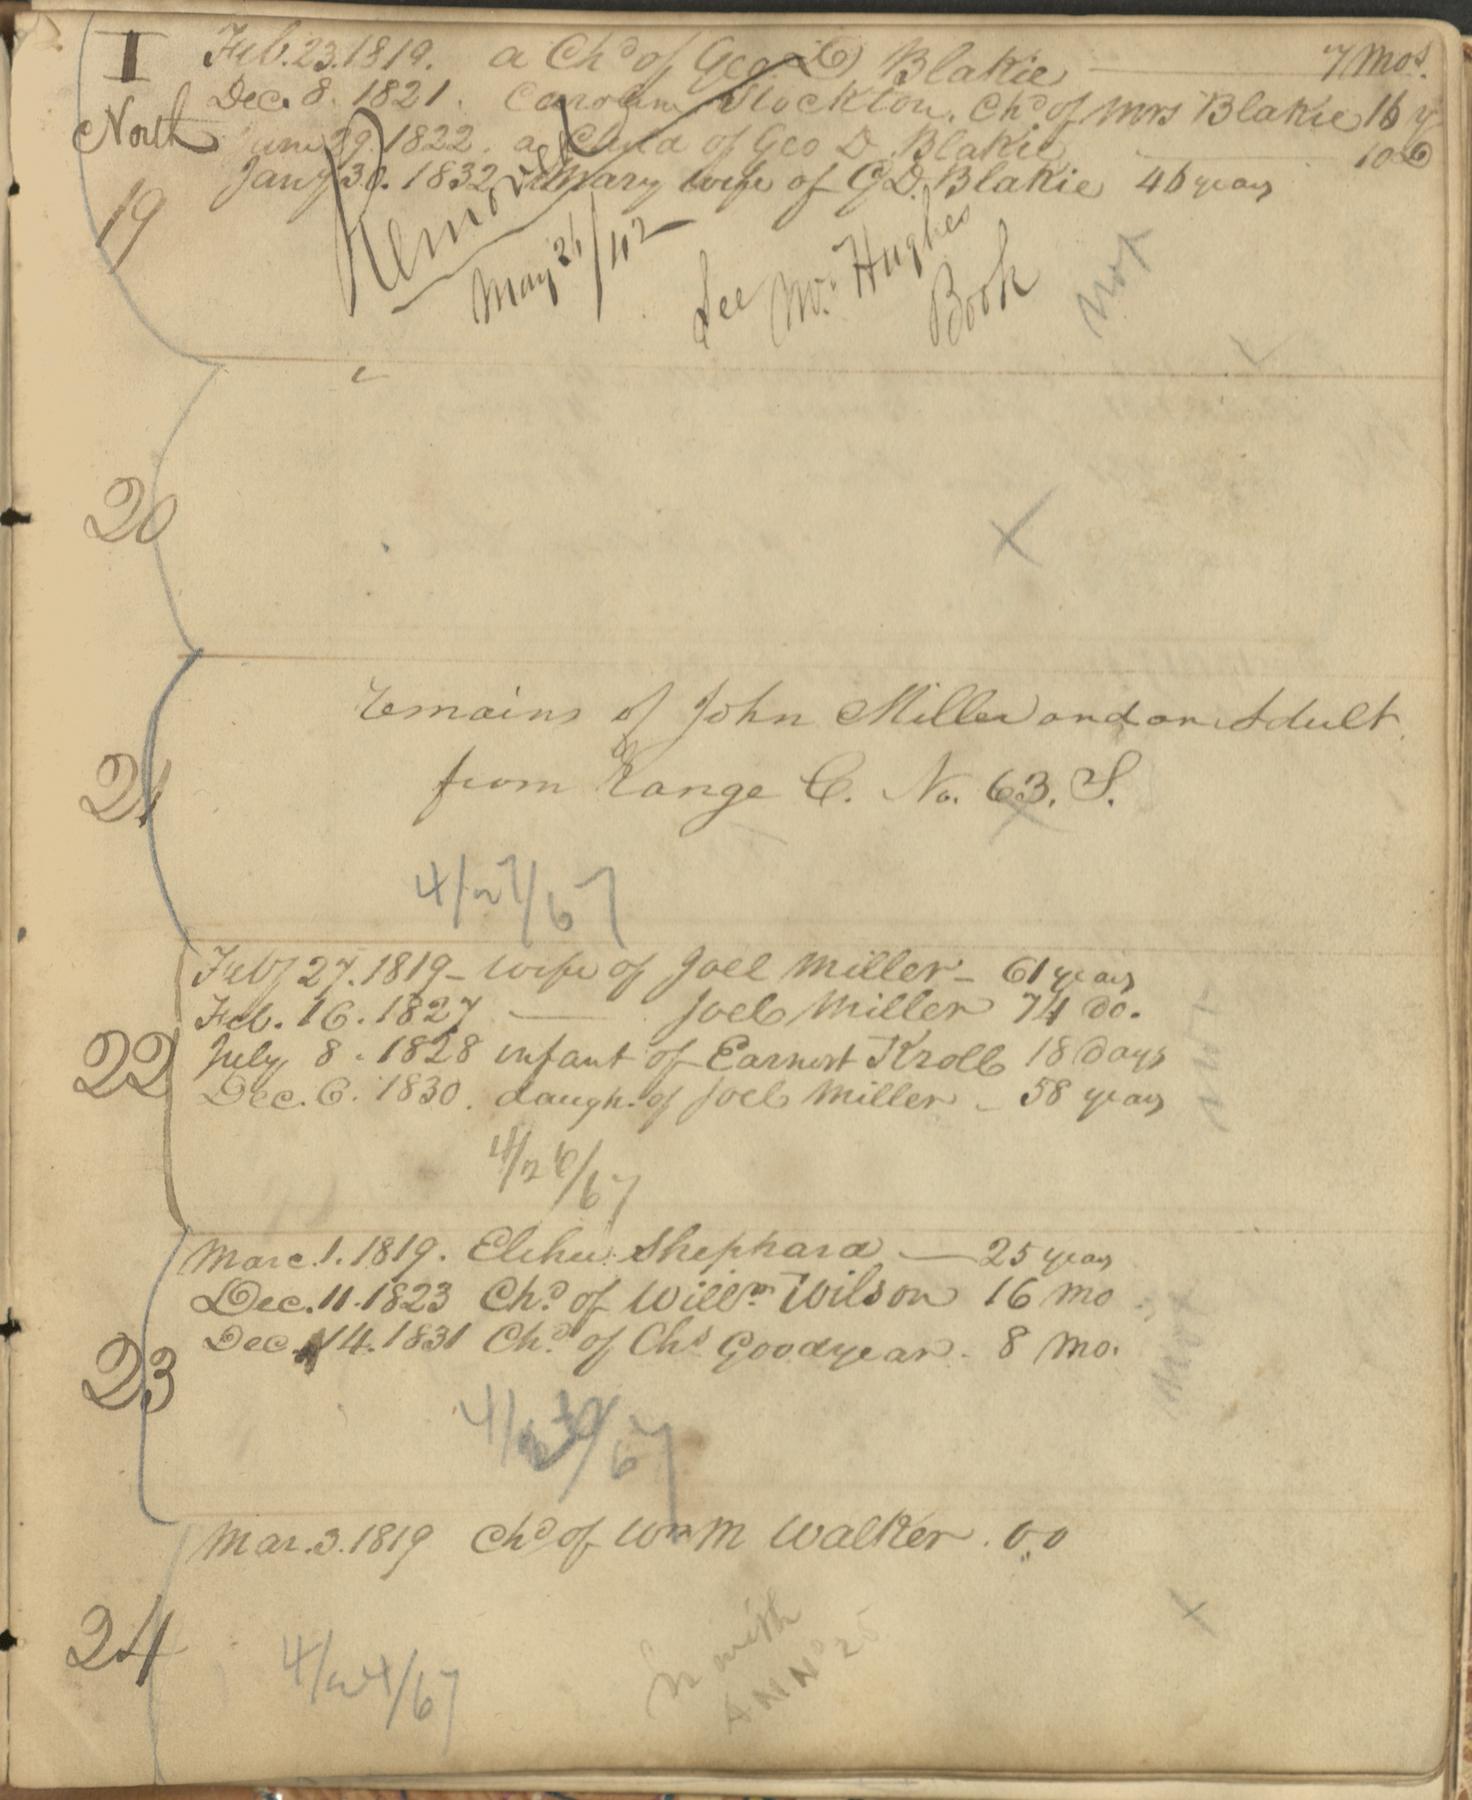 I Feb. 23. 1819. a Chd of Geo D Blakie 7 Mos.
Dec. 8. 1821. Caroline Stockton. Chd of Mrs Blakie 16 y
North June 29. 1822. a Child of Geo D. Blakie
Jany 30. 1832 Mary wife of G D. Blakie 46 years
19
Removed
May 26/42
See Mr. Hughes
Book
not
20
X
21
remains of John Miller and an Adult
from Range C. No. 63. S.
4/27/67
22
Feby 27. 1819 - wife of Joel Miller - 61 years
Feb. 16. 1827 Joel Miller 74 do.
July 8. 1828 infant of Earnest Kroll 18 Days
Dec. 6. 1830. daugh. of Joel Miller - 58 years
not
4/26/67
23
Marc. 1. 1819. Elihu Shephard 25 years
Dec. 11. 1823 Chd of Willm Wilson 16 mo
Dec. 14. 1831 Chd of Chs Goodyear - 8 mo.
not
24
Mar. 3. 1819 Chd of Wm M Walker. 0,,0
4/24/67
with
No 25